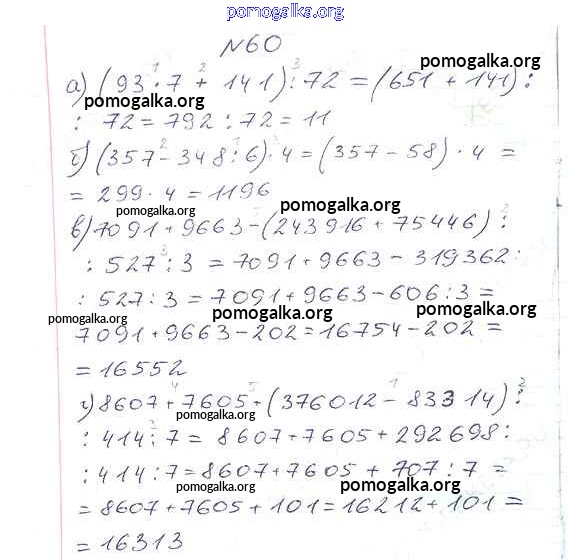 pomogalka.org
№60
а) (93 · 7 + 141) : 72 = (651 + 141) :
pomogalka.org
pomogalka.org
: 72 = 792 : 72 = 11
б) (357 - 348 : 6) · 4 = (357 - 58) · 4 =
= 299 · 4 = 1196
pomogalka.org
pomogalka.org
в) 7091 + 9663 - (243916 + 75446) :
: 527 : 3 = 7091 + 9663 - 319362 :
: 527 : 3 = 7091 + 9663 - 606 : 3 =
pomogalka.org
pomogalka.org
pomogalka.org
7091 + 9663 - 202 = 16754 - 202 =
= 16552
г) 8607 + 7605 + (376012 - 83314) :
pomogalka.org
: 414 : 7 = 8607 + 7605 + 292698 :
: 414 : 7 = 8607 + 7605 + 707 : 7 =
pomogalka.org
pomogalka.org
= 8607 + 7605 + 101 = 16212 + 101 =
= 16313
pomogalka.org
pomogalka.org